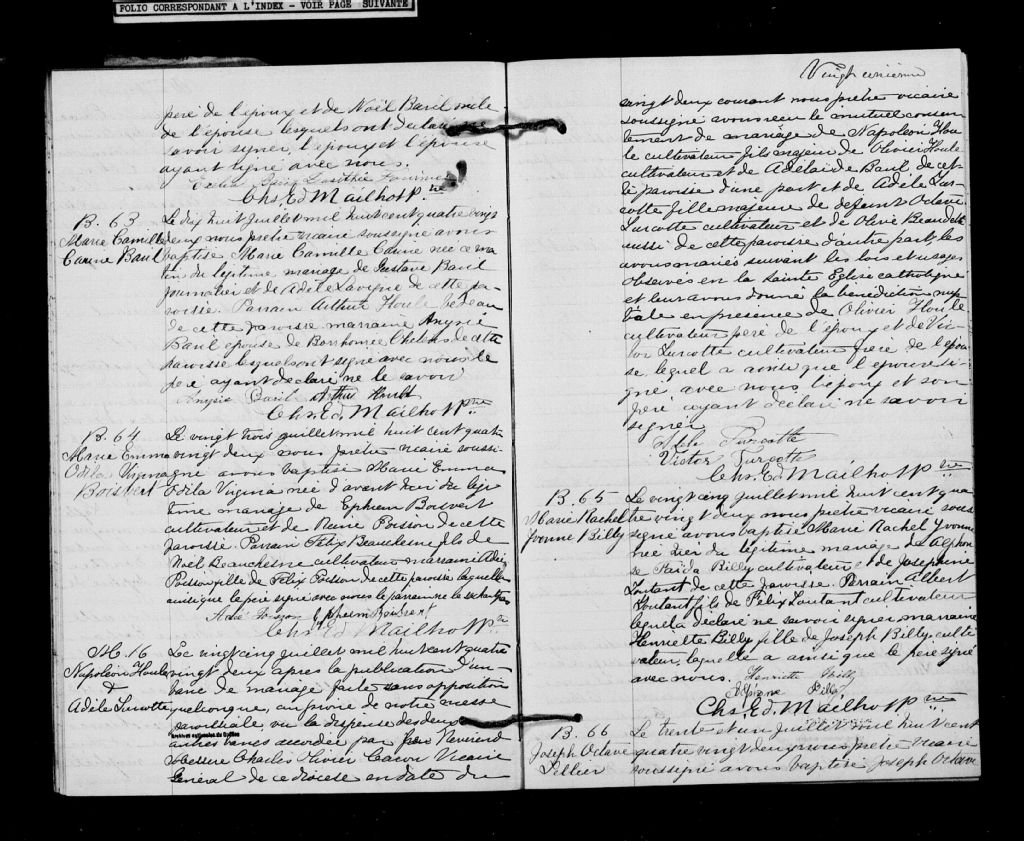 FOLIO CORRESPONDANT A L'INDEX - VOIR PAGE SUIVANTE
père de l'époux et de Noël Baril
de l'épouse lesquels ont déclaré ne
savoir signer, l'époux et l'épouse
ayant signé avec nous.
Chs. Ed Mailhot Ptre
B. 63
Marie Camille
Canne Baril
Le dix huit juillet mil huit cent quatre vingt
deux nous prêtre vicaire soussigné avons
baptisé Marie Camille née ce ma
tin du légitime mariage de Gustave Baril
journalier et de Adèle Lavigne de cette pa-
roisse. Parrain Arthur Houle bedeau
de cette paroisse marraine Anysie
Baril épouse de de cette
paroisse lesquels ont signé avec nous le
père ayant déclaré ne le savoir
Anysie Baril Arthur Houle
Chs. Ed. Mailhot Ptre
B. 64
Marie Emma
Odila Virginia
Boisvert
Le vingt trois juillet mil huit cent quatre
vingt deux nous prêtre vicaire soussi-
gné avons baptisé Marie Emma
Edila Virginia née d'avant hier du légi
time mariage de Ephrem Boisvert
cultivateur et de Poisson de cette
paroisse. Parrain Felix Beauchesne fils de
Noël Beauchesne cultivateur marraine Adèle
Poisson fille de Felix Poisson de cette paroisse laquelle
ainsi que le père signé avec nous le parrain ne le sachant pas
Ephrem Boisvert
Chs. Ed Mailhot Ptre
M. 16
Napoléon Houle
&
Adèle Turcotte
Le vingt cinq juillet mil huit cent quatre
vingt deux après la publication d'un
banc de mariage faite sans opposition
quelconque, au prône de notre messe
paroissiale vu la dispense des deux
Archives nationales du Québec
autres bancs accordée par Révérend
Messire Charles Olivier Caron Vicaire
Général de ce diocèse en date du
Vingt
vingt deux courant nous prêtre vicaire
soussigné avons reçu le mutuel consen
tement de mariage de Napoléon Hou
le cultivateur fils majeur de Olivier Houle
cultivateur et de Adélaïde Baril de cet-
te paroisse d'une part et de Adèle Tur
cotte fille majeure de défunt Octave
Turcotte cultivateur et de Olive Beaudet
aussi de cette paroisse d'autre part, les
avons mariés suivant les lois et usages
observés en la Sainte Eglise catholique
et leur avons donné la bénédiction nup
tiale en présence de Olivier Houle
cultivateur père de l'époux et de Vic-
tor Turcotte cultivateur frère de l'épou
se, lequel a ainsi que l'épouse si-
gné avec nous l'époux et son
père ayant déclaré ne savoir
signer
Adèle Turcotte
Victor Turcotte
Chs. Ed Mailhot Ptre
B. 65
Marie Rachel
Yvonne Billy
Le vingt cinq juillet mil huit cent qua
tre vingt deux nous prêtre vicaire sous
signé avons baptisé Marie Rachel Yvonne
née hier du légitime mariage de Alphon
se Billy cultivateur et de Joséphine
Toutant de cette paroisse. Parrain Albert
Toutant fils de Felix Toutant cultivateur
lequel a déclaré ne savoir signer marraine
Henriette Billy fille de Joseph Billy culti
vateur, laquelle a ainsi que le père signé
avec nous.
Henriette Billy
Alphonse Billy
Chs. Ed. Mailhot Ptre
B. 66
Joseph Octave
Pellier
Le trente et un juillet mil huit cent
quatre vingt deux nous prêtre vicaire
soussigné avons baptisé Joseph Octave